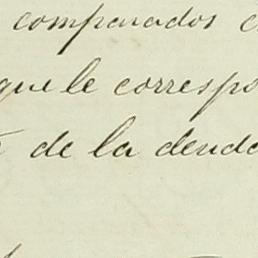 comparados
que le correspo
de la deuda